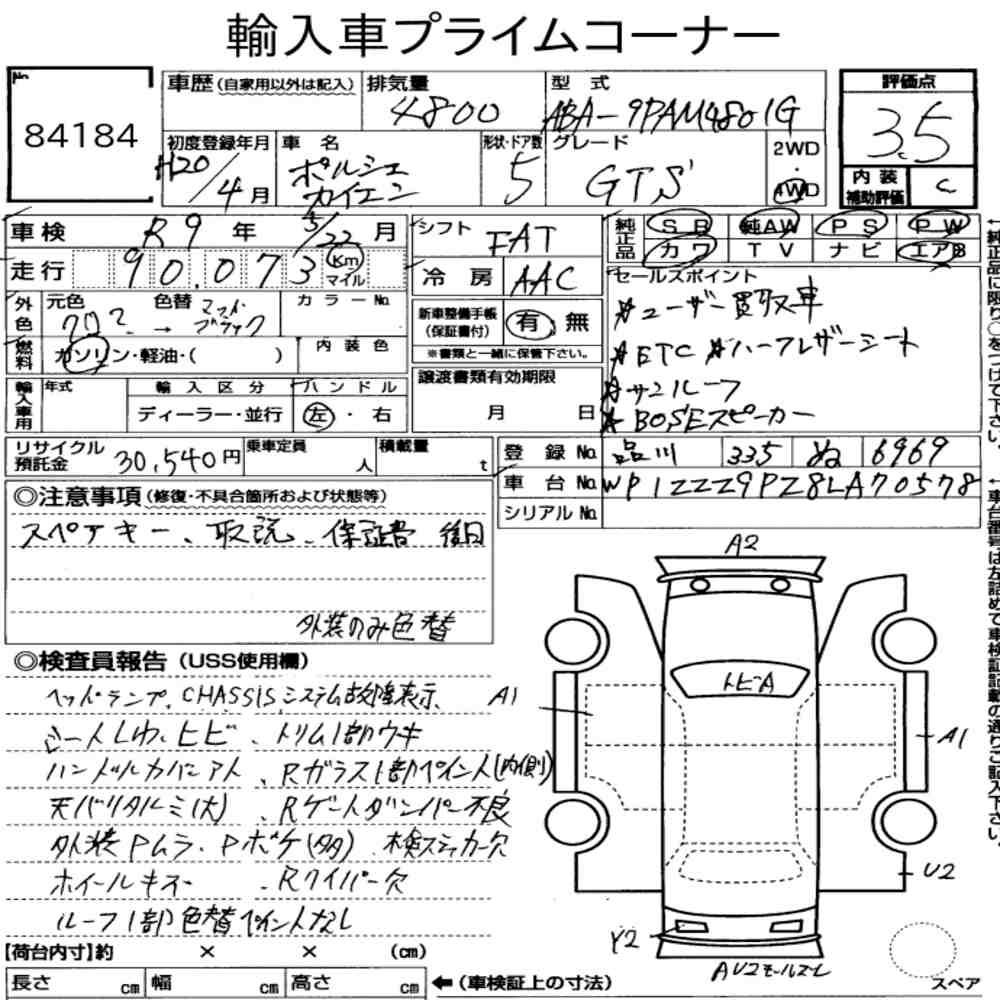 輸入車プライムコーナー
No. 84184
車歴(自家用以外は記入)
排気量 4800
型式 ABA-9PAM4801G
評価点 3.5
内装補助評価 C
初度登録年月 H20/4月
車名 ポルシェ カイエン
形状・ドア数 5
グレード GTS
2WD ・ 4WD
車検 R9年 5/22月
走行 90,073 Km マイル
シフト FAT
冷房 AAC
純正品 SR 純AW PS PW
カワ TV ナビ エアB
外色 元色 クロ2 → 色替 マットブラック
カラーNo.
燃料 ガソリン・軽油・( )
内装色
新車整備手帳(保証書付) 有 無
※書類と一緒に保管下さい。
セールスポイント
#ユーザー買取車
#ETC #ハーフレザーシート
#サンルーフ
#BOSEスピーカー
輸入車用 年式
輸入区分 ディーラー・並行
ハンドル 左・右
譲渡書類有効期限
月 日
リサイクル預託金 30,540円
乗車定員 人
積載量 t
登録No. 品川 335 ぬ 6969
車台No. WP1ZZZ9PZ8LA70578
シリアルNo.
◎注意事項(修復・不具合箇所および状態等)
スペアキー、取説、保証書 後日
外装のみ色替
◎検査員報告(USS使用欄)
ヘッドランプ、CHASSISシステム故障表示
シートしわ、ヒビ・トリム1部ウキ
ハンドルカバーアト、Rガラス1部ペイント(内側)
天バリタルミ(大) Rゲートダンパー不良
外装Pムラ、Pボケ(多) 検ステッカー欠
ホイールキズ ・Rワイパー欠
ルーフ1部色替ペイントなし
A2
トビA
A1
A1
U2
Y2
AU2モールズレ
スペア
【荷台内寸】約 × × (cm)
長さ cm 幅 cm 高さ cm
←(車検証上の寸法)
←純正品に限り○をつけて下さい。
←車台番号は左詰めで車検証記載の通りご記入下さい。